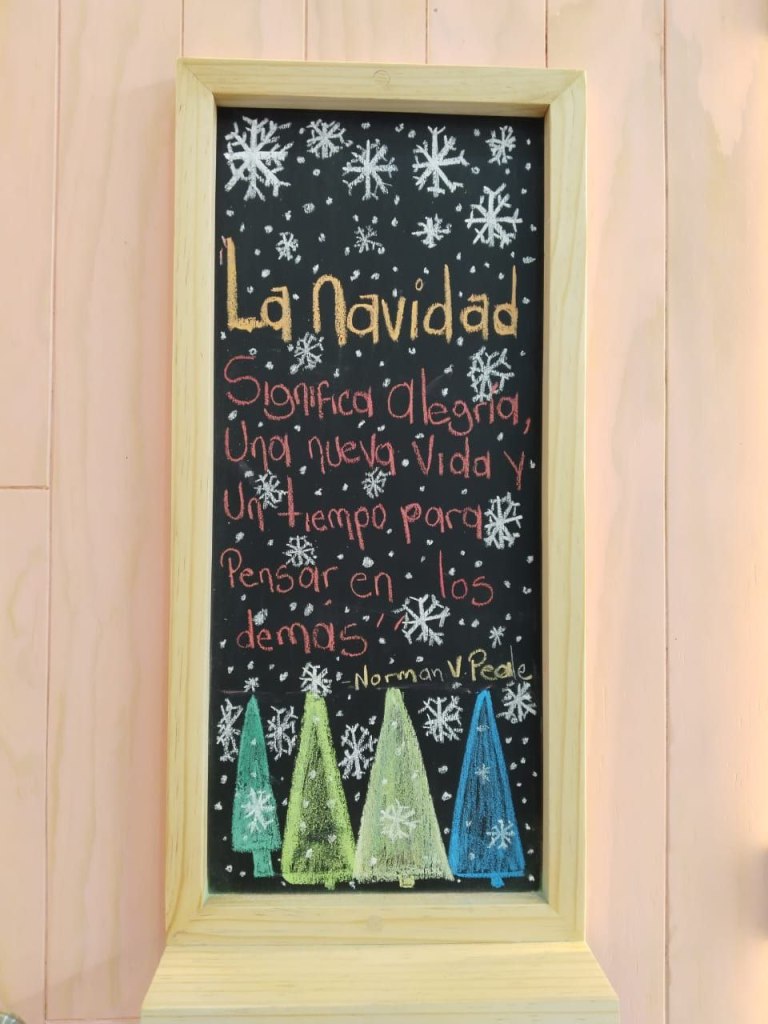 "La navidad
Significa alegría,
Una nueva vida y
Un tiempo para
Pensar en los
demás"
-Norman V. Peale